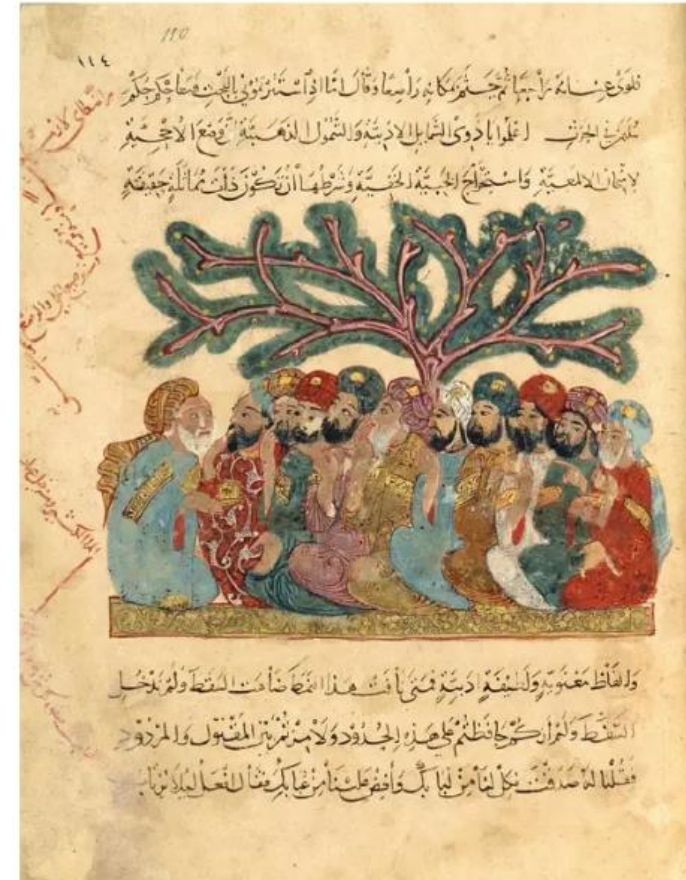 110
١١٤
فلوى عنانه راجعا ثم جثم بمكانه راسعا وقال اما اذ استثرتموني بالبحث فساحكم حكم
سليمن في الحرث اعلموا يا ذوي الشمايل الادبية والشمول الذهبية ان وضع الاحجية
لامتحان الالمعية واستخراج الخبية الخفية وشرطها ان تكون ذات مماثلة حقيقية
والفاظ معنوية ولطيفة ادبية فمتى نافت هذا النمط ضاهت السقط ولم تدخل
السفط ولم اركم حافظتم على هذه الحدود ولا مزتم بين المقبول والمردود
فقلنا له صدقت فكل لنا من لبابك وافض علينا من عبابك فقال افعل ليلا يرتاب